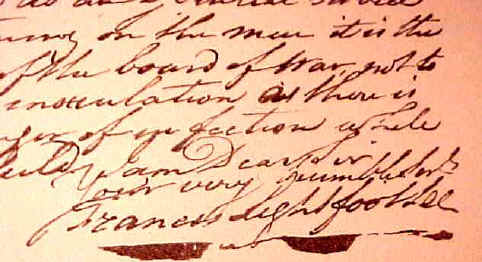 on the men it is the
of the board of War, not to
inoculation as there is
of infection while
I am Dear Sir
Your very humble Sert
Francis Lightfoot Lee